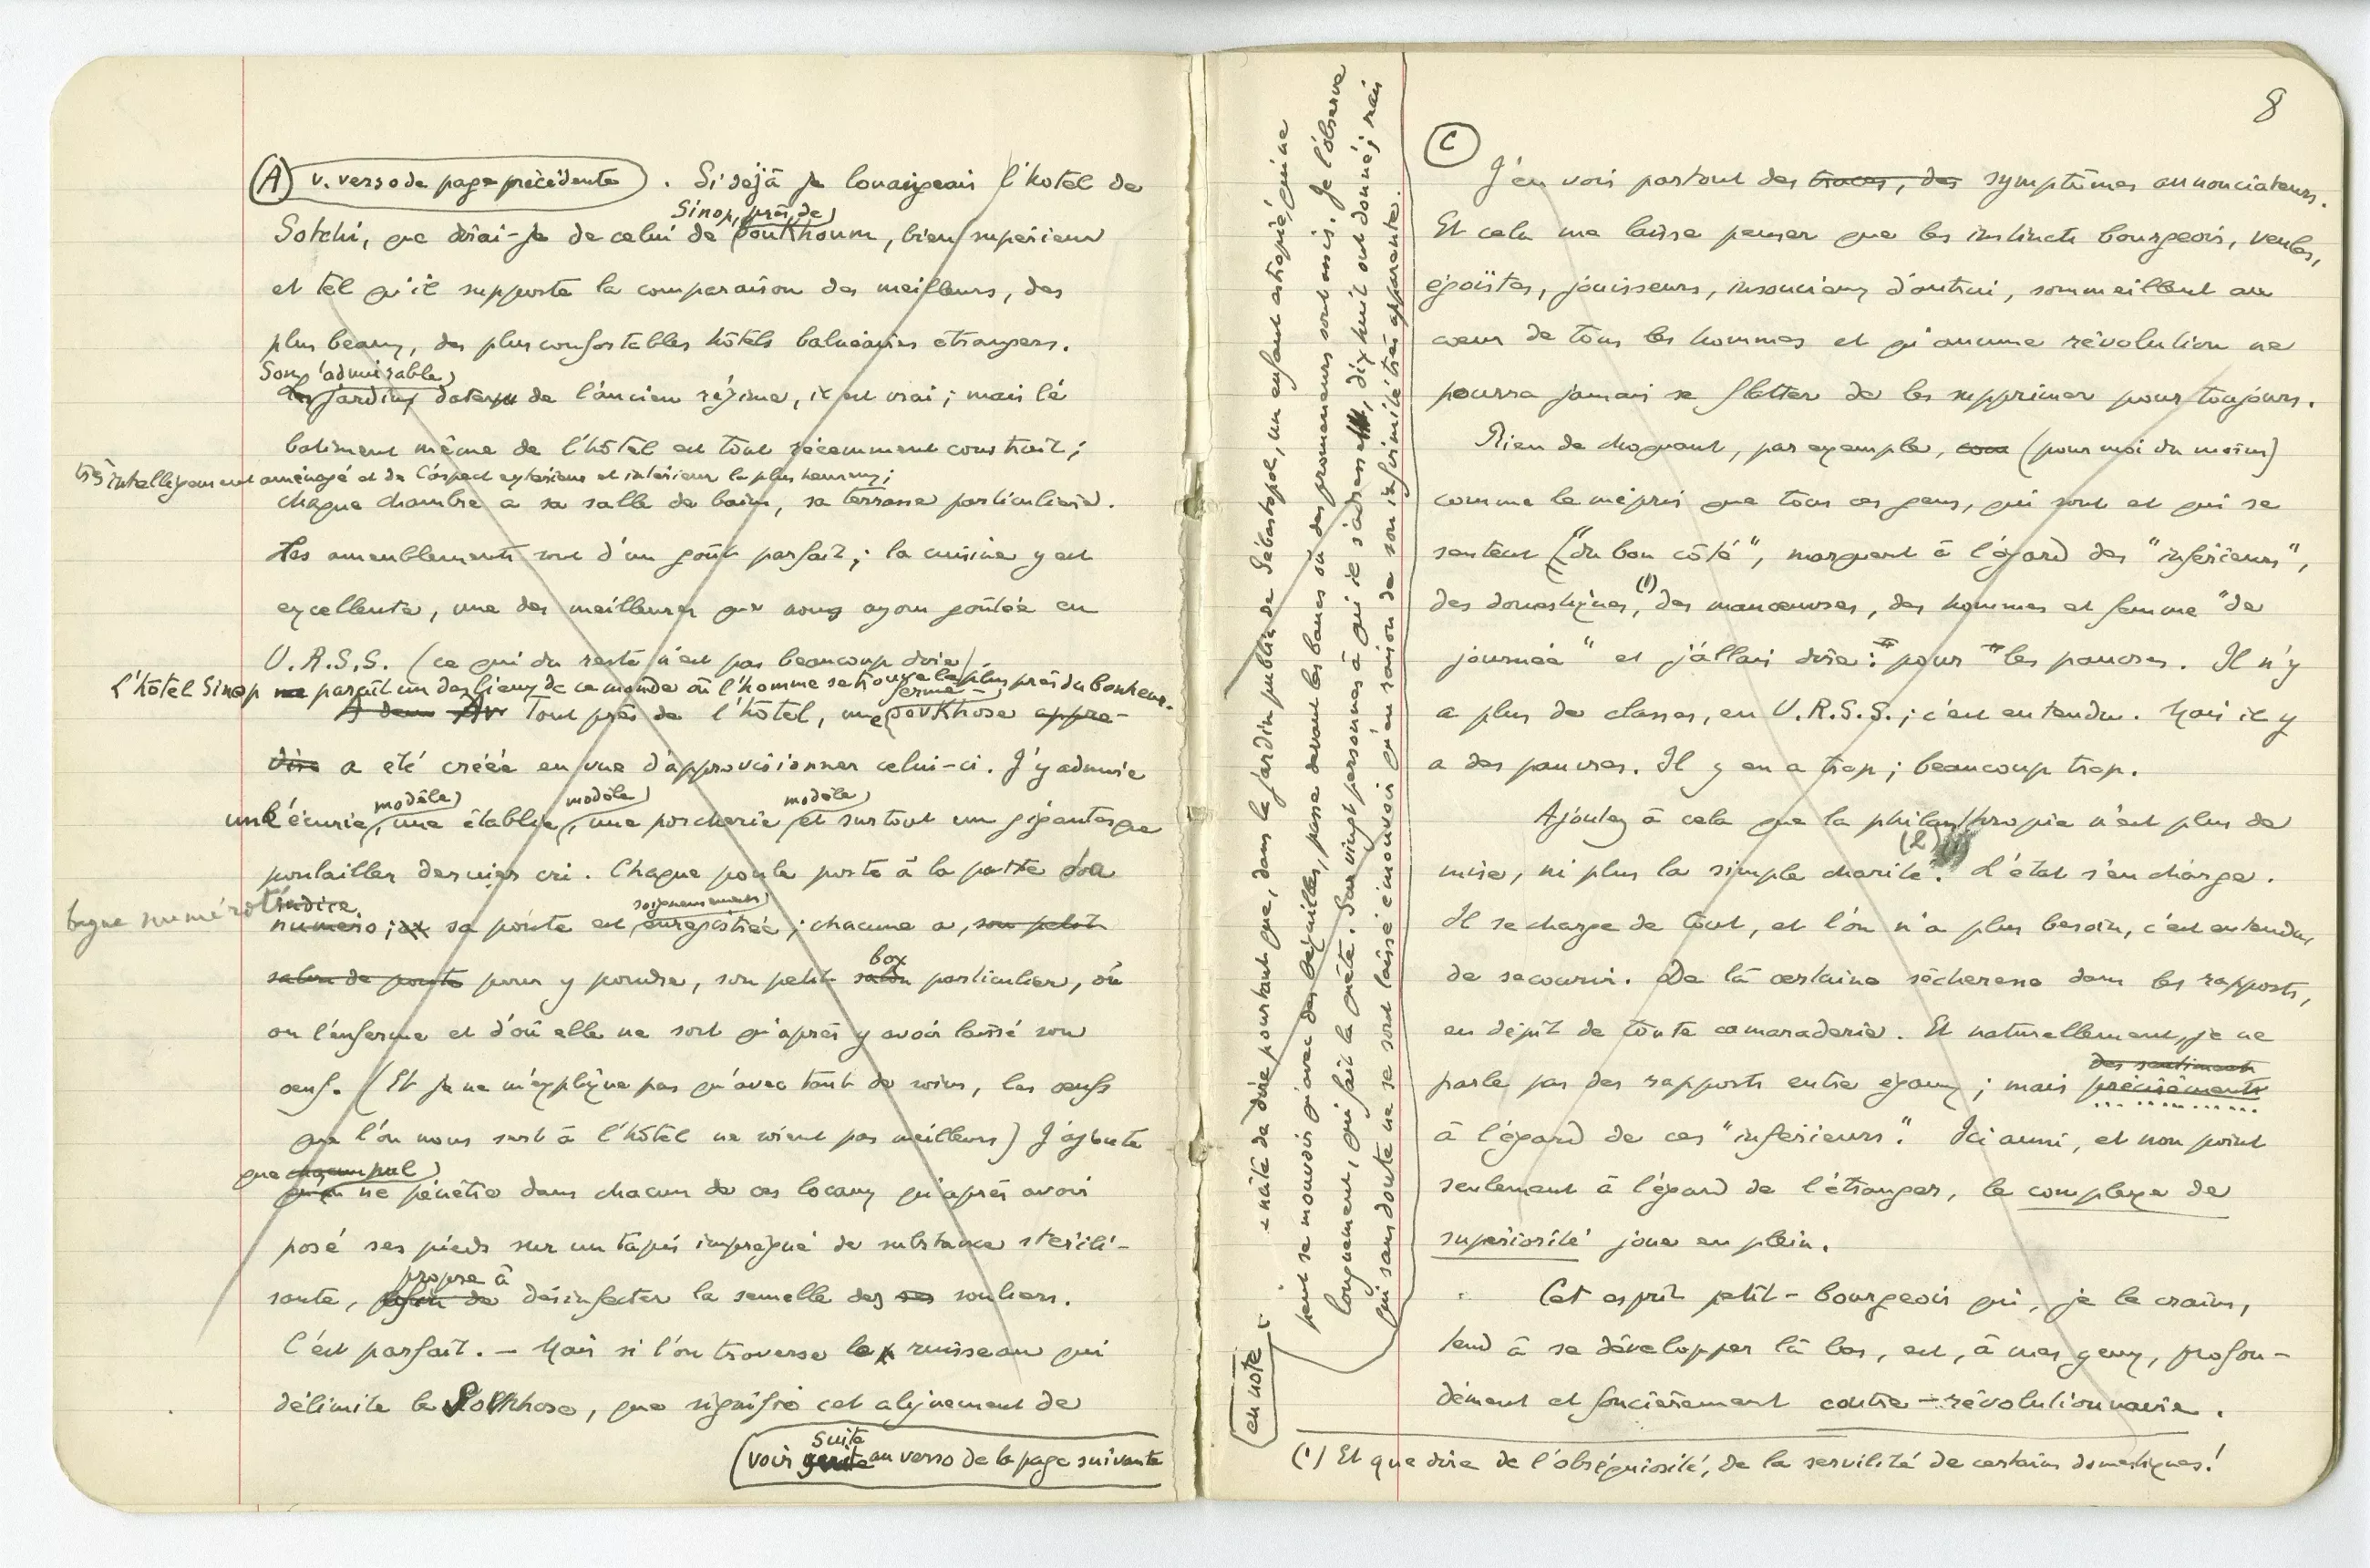 (A) v. verso de page précédente). Si déjà je louangeais l'hôtel de
Sinop, près de
Sotchi, que dirai-je de celui de Soukhoum, bien supérieur
et tel qu'il supporte la comparaison des meilleurs, des
plus beaux, des plus confortables hôtels balnéaires étrangers.
Son admirable
Les jardins datent de l'ancien régime, il est vrai ; mais le
batiment même de l'hôtel est tout récemment construit ;
très intelligemment aménagé et de l'aspect extérieur et intérieur le plus heureux ;
chaque chambre a sa salle de bains, sa terrasse particulière.
Les ameublements sont d'un goût parfait ; la cuisine y est
excellente, une des meilleures que nous ayons goûtée en
U.R.S.S. (ce qui du reste n'est pas beaucoup dire)
L'hôtel Sinop me paraît un des lieux de ce monde où l'homme se trouve le plus près du bonheur.
ferme -
A deux Av Tout près de l'hôtel, une sovkhose appro-
vise a été créée en vue d'approvisionner celui-ci. J'y admire
modèle modèle modèle
une écurie, une étable, une porcherie et surtout un gigantesque
poulailler dernier cri. Chaque poule porte à la patte sa
bague numérotée indice
soigneusement
numéro ; et sa ponte est enregistrée ; chacune a, son petit
box
salon de ponte pour y pondre, son petit salon particulier, où
on l'enferme et d'où elle ne sort qu'après y avoir laissé son
œuf. (Et je ne m'explique pas qu'avec tant de soins, les œufs
que l'on nous sert à l'hôtel ne soient pas meilleurs) J'ajoute
que nul
ne pénètre dans chacun de ces locaux qu'après avoir
posé ses pieds sur un tapis imprégné de substance stérili-
propre à
sante, afin de désinfecter la semelle des ses souliers.
C'est parfait. — Mais si l'on traverse le ruisseau qui
délimite le Sovkhose, que signifie cet alignement de
suite
(voir au verso de la page suivante
en note : inité de dire pourtant que, dans le jardin public de Sébastopol, un enfant estropié, qui ne
peut se mouvoir qu'avec des béquilles, passe devant les bancs où des promeneurs sont assis. Je l'observe
longuement, qui fait la quête. Sur vingt personnes à qui il s'adresse, dix huit ont donné ; mais
qui sans doute ne se sont laissé émouvoir qu'en raison de son infirmité très apparente.
8
(C)
J'en vois partout des traces, des symptômes annonciateurs.
Et cela me laisse penser que les instincts bourgeois, veules,
égoïstes, jouisseurs, insoucieux d'autrui, sommeillent au
cœur de tous les hommes et qu'aucune révolution ne
pourra jamais se flatter de les supprimer pour toujours.
Rien de choquant, par exemple, (pour moi du moins)
comme le mépris que tous ces gens, qui sont et qui se
sentent "du bon côté", marquent à l'égard des "inférieurs",
des domestiques, (1) des manœuvres, des hommes et femme "de
journée" et j'allais dire : pour les pauvres. Il n'y
a plus de classes, en U.R.S.S. ; c'est entendu. Mais il y
a des pauvres. Il y en a trop ; beaucoup trop.
Ajoutez à cela que la philanthropie n'est plus de
(2)
mise, ni plus la simple charité. L'état s'en charge.
Il se charge de tout, et l'on n'a plus besoin, c'est entendu,
de secourir. De là certaine sécheresse dans les rapports,
en dépit de toute camaraderie. Et naturellement, je ne
des sentiments
parle pas des rapports entre égaux ; mais précisément
à l'égard de ces "inférieurs". Ici aussi, et non point
seulement à l'égard de l'étranger, le complexe de
supériorité joue en plein.
Cet esprit petit-bourgeois qui, je le crains,
tend à se développer là bas, est, à mes yeux, profon-
dément et foncièrement contre-révolutionnaire.
(1) Et que dire de l'obséquiosité, de la servilité de certains domestiques !